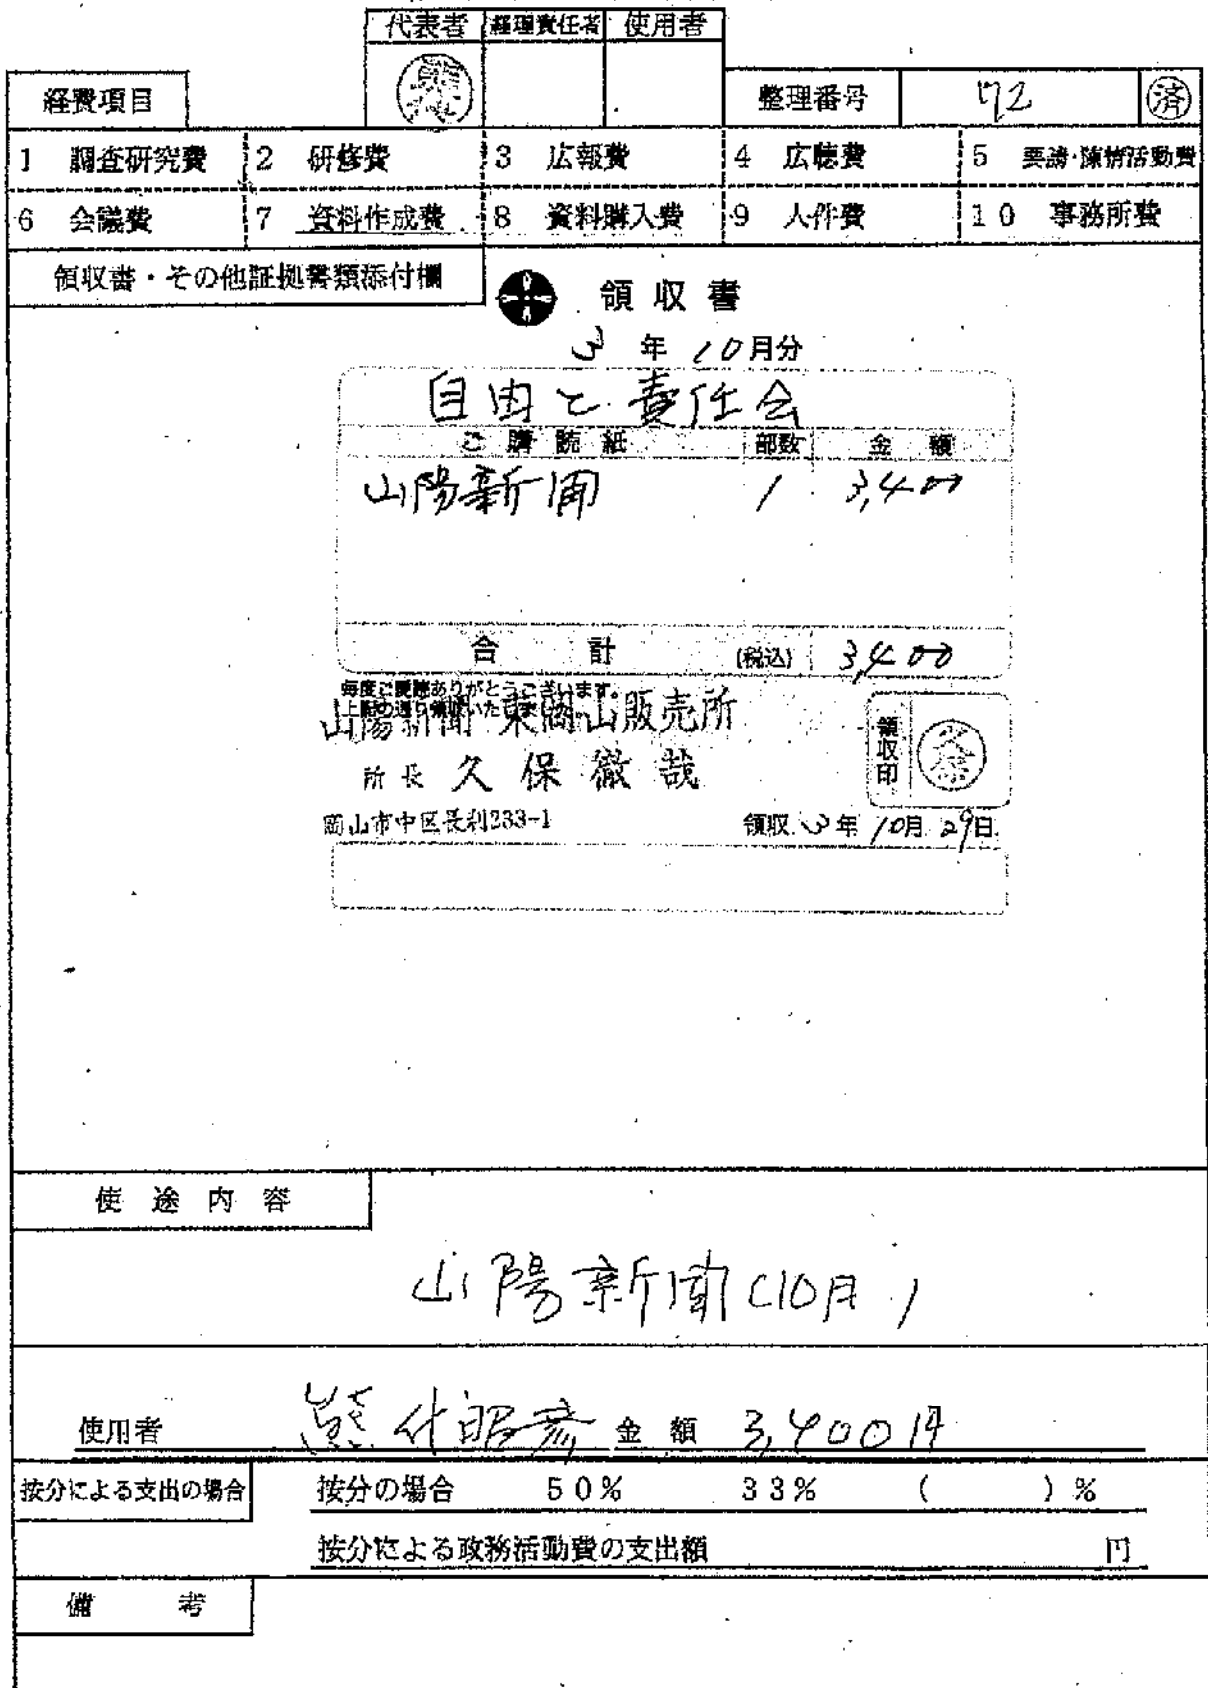 代表者 経理責任者 使用者
経費項目 整理番号 72 済
1 調査研究費 2 研修費 3 広報費 4 広聴費 5 要請・陳情活動費
6 会議費 7 資料作成費 8 資料購入費 9 人件費 10 事務所費
領収書・その他証拠書類添付欄
領収書
3年10月分
自由と責任会
ご購読紙 部数 金額
山陽新聞 1 3,400
合計 (税込) 3,400
毎度ご愛読ありがとうございます。
上記の通り領収いたしました。
山陽新聞 東岡山販売所
所長 久保徹哉
領収印 久保
岡山市中区長利233-1
領収 3年10月29日
使途内容
山陽新聞(10月)
使用者 熊代昭彦 金額 3,400円
按分による支出の場合 按分の場合 50% 33% ( )%
按分による政務活動費の支出額 円
備考